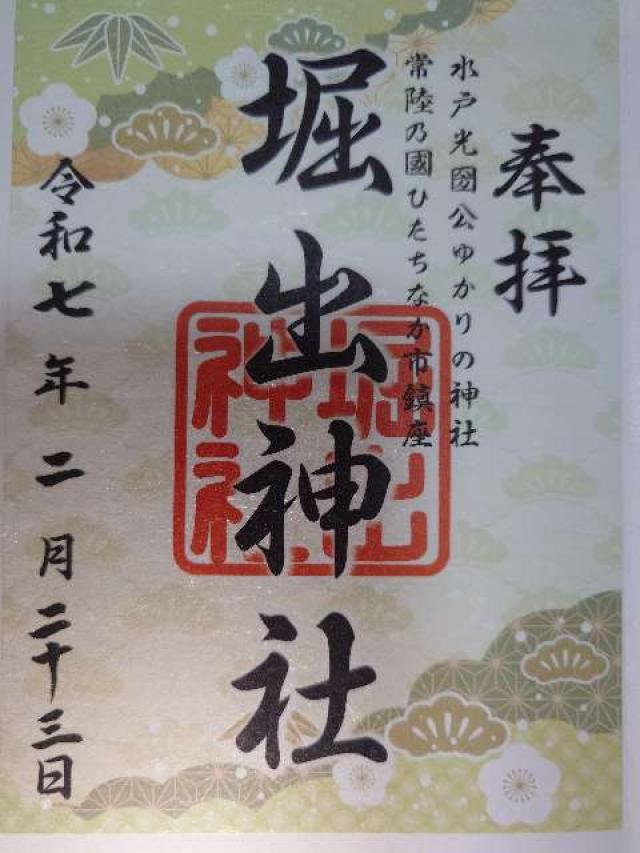 奉拝
水戸光圀公ゆかりの神社
常陸乃國ひたちなか市鎮座
堀出神社
堀出神社
令和七年二月二十三日